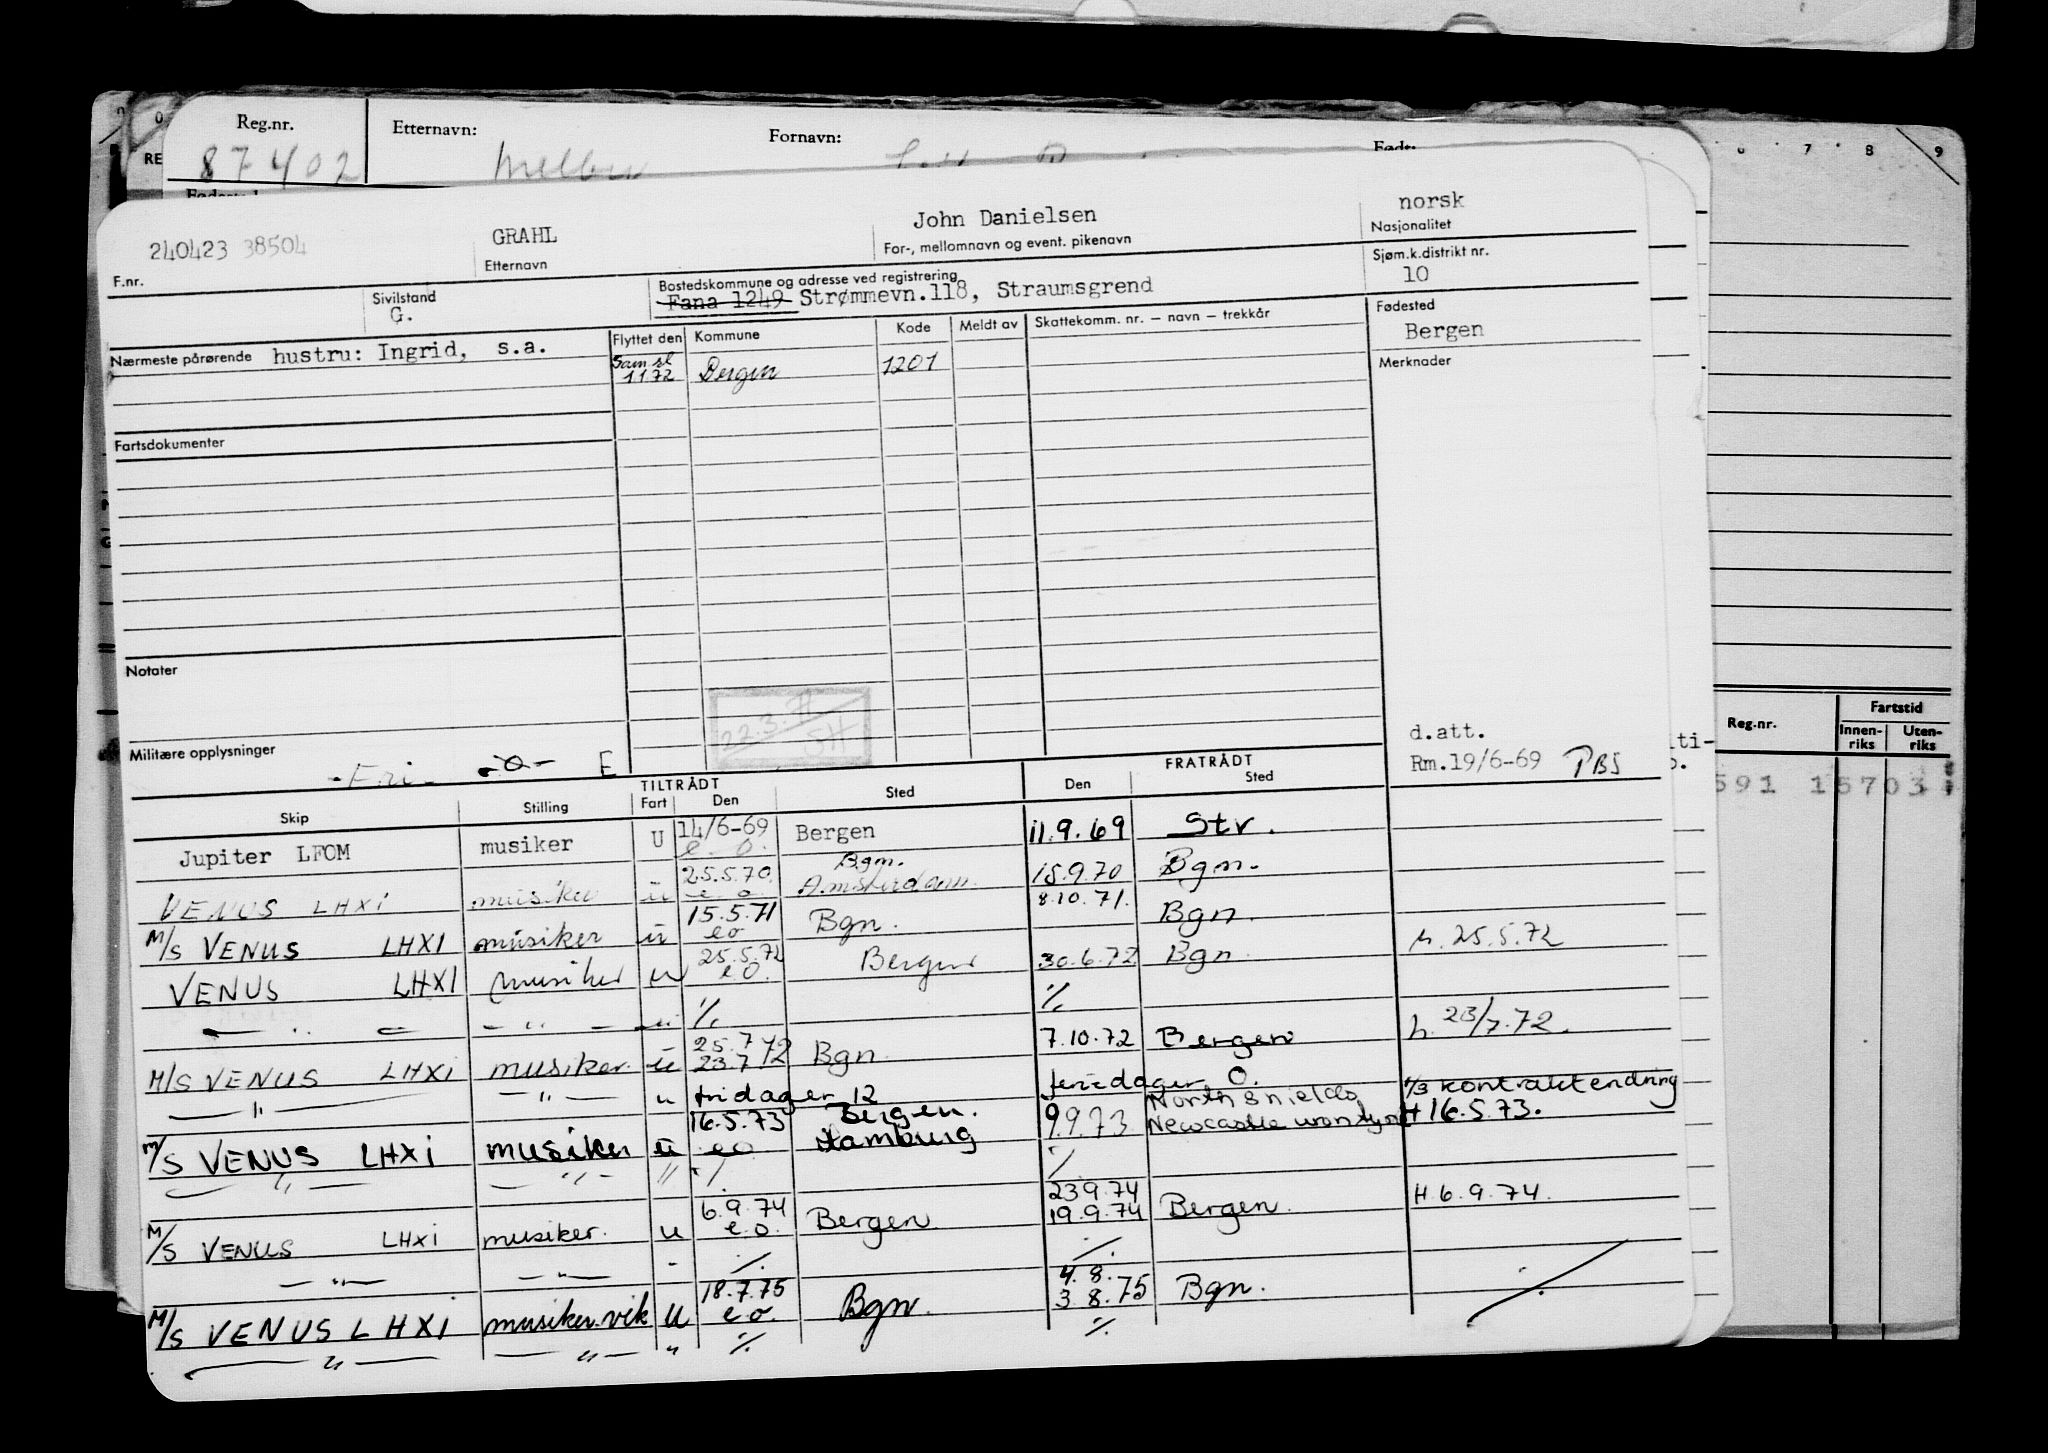 Reg.nr. Etternavn: Fornavn: Født:
87402
RE 7 8 9
240423 38504 GRAHL John Danielsen norsk
F.nr. Etternavn For-, mellomnavn og event. pikenavn Nasjonalitet
Sivilstand Bostedskommune og adresse ved registrering Sjøm.k.distrikt nr.
G. Fana 1249 Strømmevn.118, Straumsgrend 10
Nærmeste pårørende hustru: Ingrid, s.a. Flyttet den Kommune Kode Meldt av Skattekomm. nr. — navn — trekkår Fødested
Bergen
Sam sl 1172 Bergen 1201 Merknader
Fartsdokumenter
Notater
22.3.71
SH
Militære opplysninger
-Fri- -o- E
d.att.
Rm.19/6-69 PBS
Reg.nr. Fartstid
Innen-riks Uten-riks
591 15703
TILTRÅDT FRATRÅDT
Skip Stilling Fart Den Sted Den Sted
Jupiter LFOM musiker U 14/6-69 e o. Bergen 11.9.69 Str.
VENUS LHXI musiker u 25.5.70 e o. Bgn. Amsterdam 15.9.70 Bgn.
M/S VENUS LHXI musiker u 15.5.71 eo Bgn. 8.10.71. Bgn.
VENUS LHXI musiker u 25.5.72 e o. Bergen 30.6.72 Bgn. h. 25.5.72
— " — — " — u % %
M/S VENUS LHXI musiker. u 25.7 23.7 72 Bgn 7.10.72 Bergen h. 23/7.72.
— " — — " — u fridager 12 feriedager. 0. 1/3 kontraktendring
M/S VENUS LHXI musiker u 16.5.73 eo Bergen. Hamburg 9.9.73 North Shields Newcastle H 16.5.73.
— " — — " — " % %
M/S VENUS LHXI musiker. u 6.9.74 e.o. Bergen 23.9.74 19.9.74 Bergen. H 6.9.74.
— " — — " — - % %
M/S VENUS LHXI musiker.vik U 18.7.75 e.o. Bgn. 4.8. 3.8.75 Bgn.
— " — — " — " % %